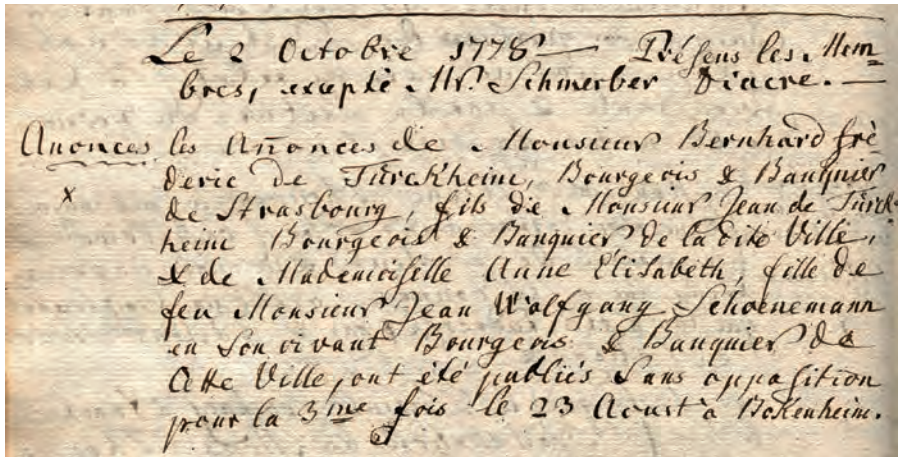 Le 2 Octobre 1778 — Présens les Mem=
bres, excepté Mr. Schmerber Diacre. —
Anonces les Anonces de Monsieur Bernhard fré-
deric de Türckheim, Bourgeois & Banquier
x de Strasbourg, fils de Monsieur Jean de Türck-
heim Bourgeois & Banquier de la dite Ville,
& de Mademoiselle Anne Elisabeth, fille de
feu Monsieur Jean Wolfgang Schoenemann
en Son vivant Bourgeois & Banquier de
Cette Ville, ont été publiés Sans opposition
pour la 3me fois le 23 Aoust à Bokenheim.